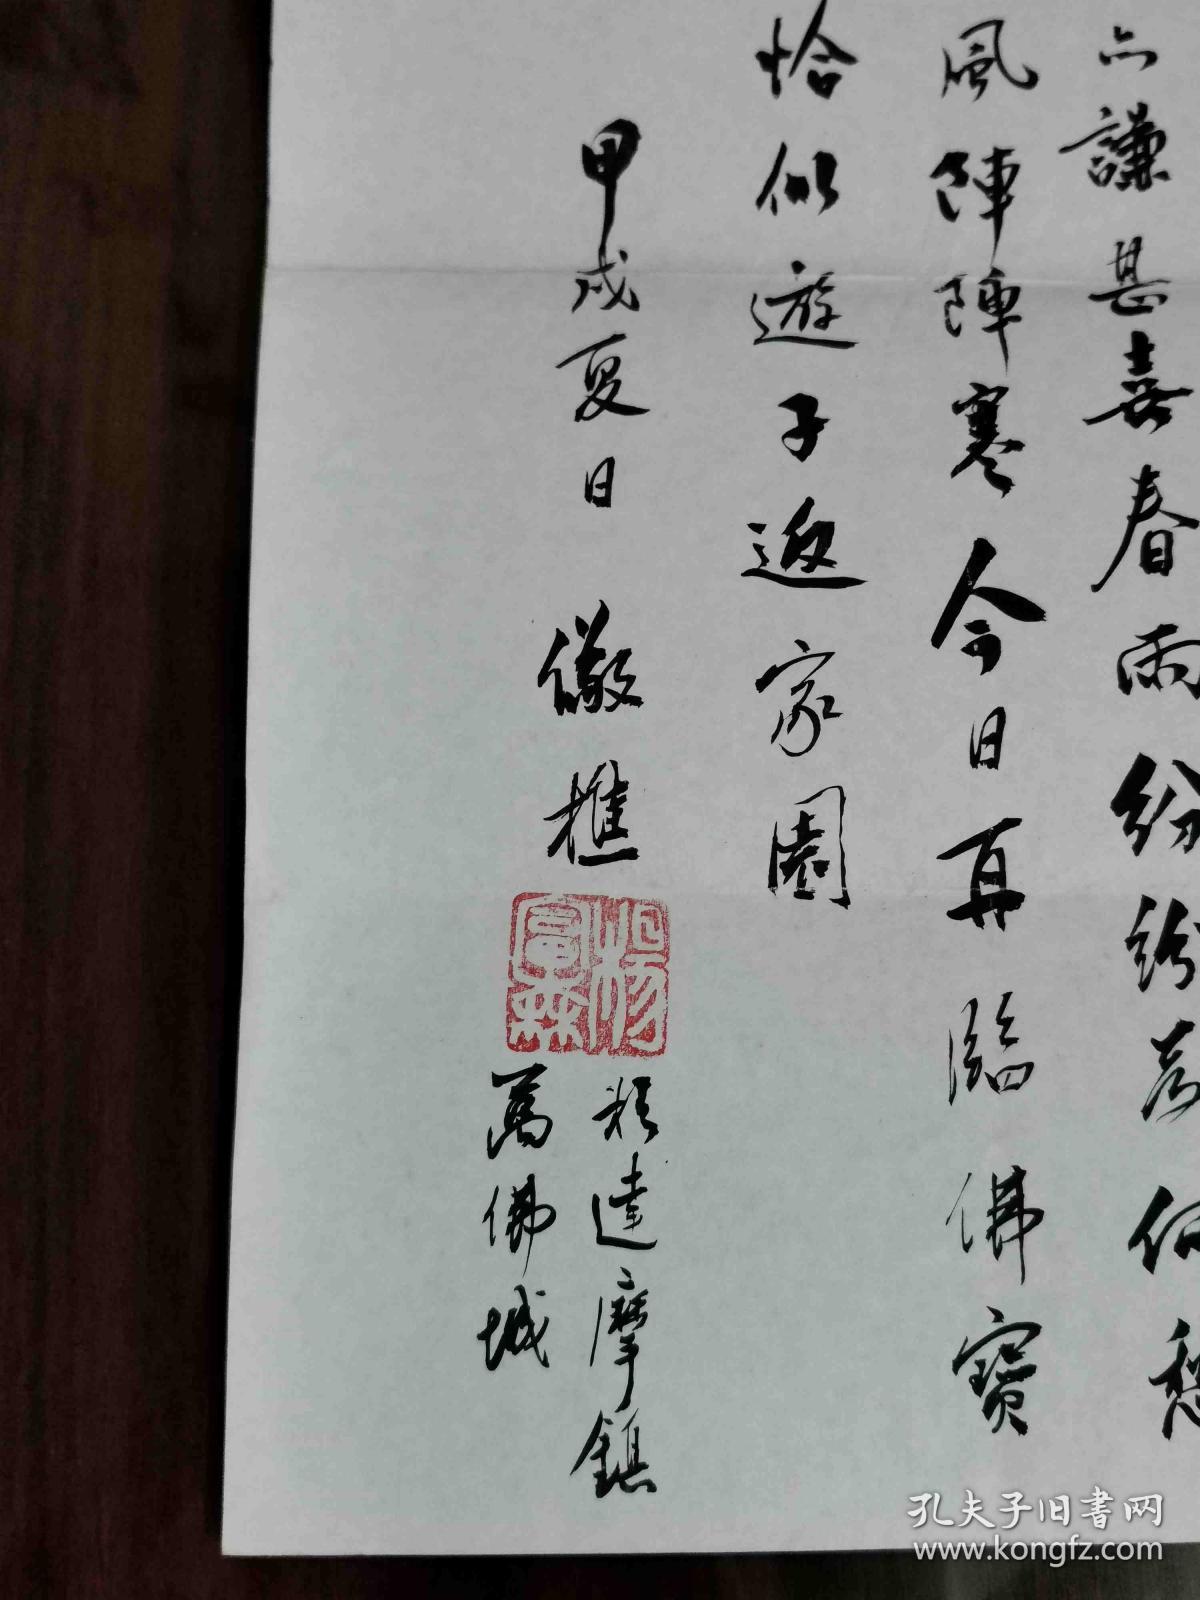 亦謙甚喜春雨紛紛六何愁
風陣陣寒今日再臨佛寶
恰似遊子返家園
甲戌夏日 儆樵
楊富森
於達摩鎮
萬佛城
孔夫子旧书网
www.kongfz.com